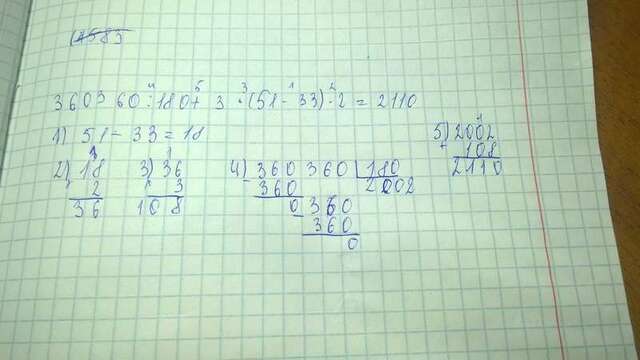 360360 : 180 + 3 · (51 - 33) · 2 = 2110
1) 51 - 33 = 18
2) 18
2
36
3) 36
3
108
4) 360360 | 180
360 2002
0360
360
0
5) 2002
+ 108
2110